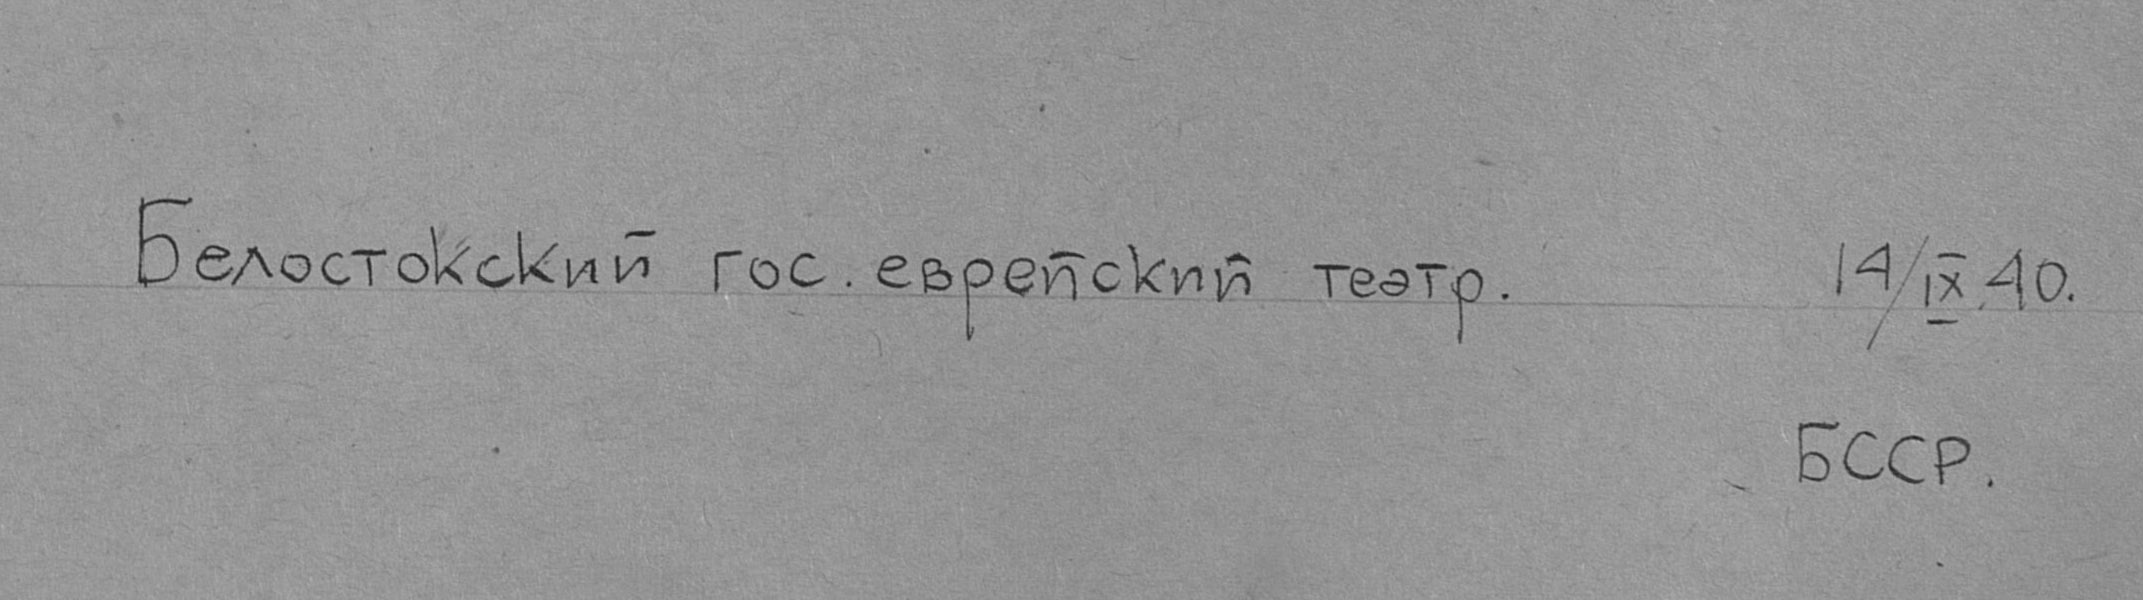 Белостокский гос. еврейский театр. 14/IX 40.
БССР.